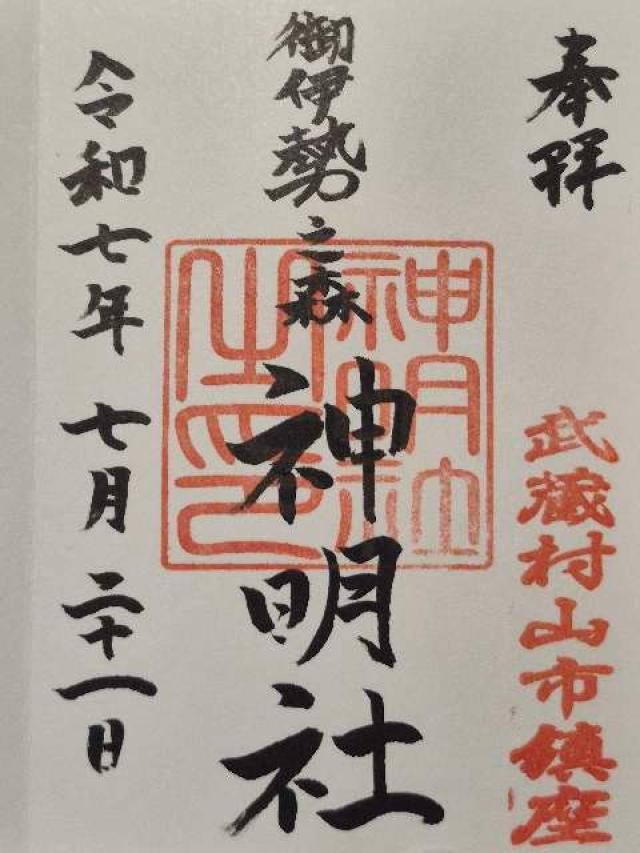 奉拝
武蔵村山市鎮座
御伊勢之森
神明社
神明社之印
令和七年七月二十一日